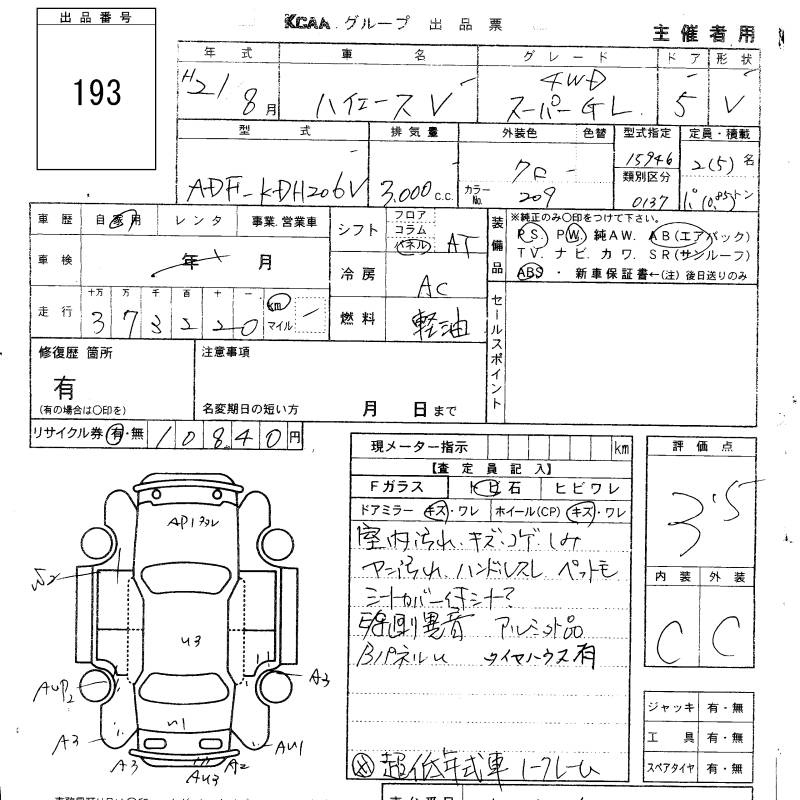 出品番号
193
KCAA グループ 出品票
主催者用
年式 車名 グレード ドア 形状
H21 8月 ハイエースV 4WD スーパーGL 5 V
型式 排気量 外装色 色替 型式指定 定員・積載
ADF-KDH206V 3,000c.c. クロ 15946 2(5)名
カラーNo. 209 類別区分 0137 (0.85)トン
車歴 自家用 レンタ 事業.営業車
車検 年 月
走行 十万 万 千 百 十 一
373220 km マイル
シフト フロア コラム パネル AT
冷房 AC
燃料 軽油
装備品
※純正のみ〇印をつけて下さい。
PS. PW. 純AW. AB(エアバック)
TV. ナビ. カワ. SR(サンルーフ)
ABS ・ 新車保証書←(注) 後日送りのみ
セールスポイント
修復歴 箇所
有
(有の場合は〇印を)
注意事項
名変期日の短い方 月 日まで
リサイクル券 有・無 10840円
現メーター指示 km
【査定員記入】
Fガラス トビ石 ヒビワレ
ドアミラー キズ・ワレ ホイール(CP) キズ・ワレ
室内汚れ.キズ.コゲ.シミ
ヤニ汚れ.ハンドルスレ ペットモ
シートカバー付シート?
異音 アルミ外品
Bパネルu タイヤハウス有
超低年式車 ノークレーム
評価点
3.5
内装 外装
C C
ジャッキ 有・無
工具 有・無
スペアタイヤ 有・無
AP1
U3
AUP2
A3
A3
U1
AU1
A3
AU3
A2